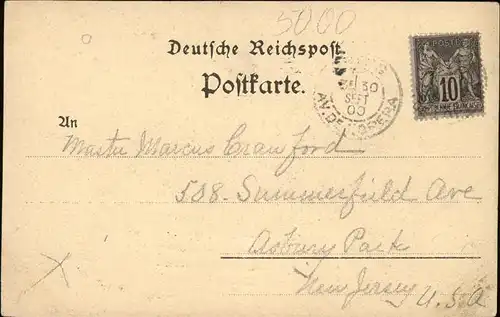 5000
Deutsche Reichspost
Postkarte.
30
SEPT
00
AV. DE L'OPERA
POSTE
10
An
Master Marcus Crawford
508. Summerfield Ave
Asbury Park
New Jersey
U.S.A